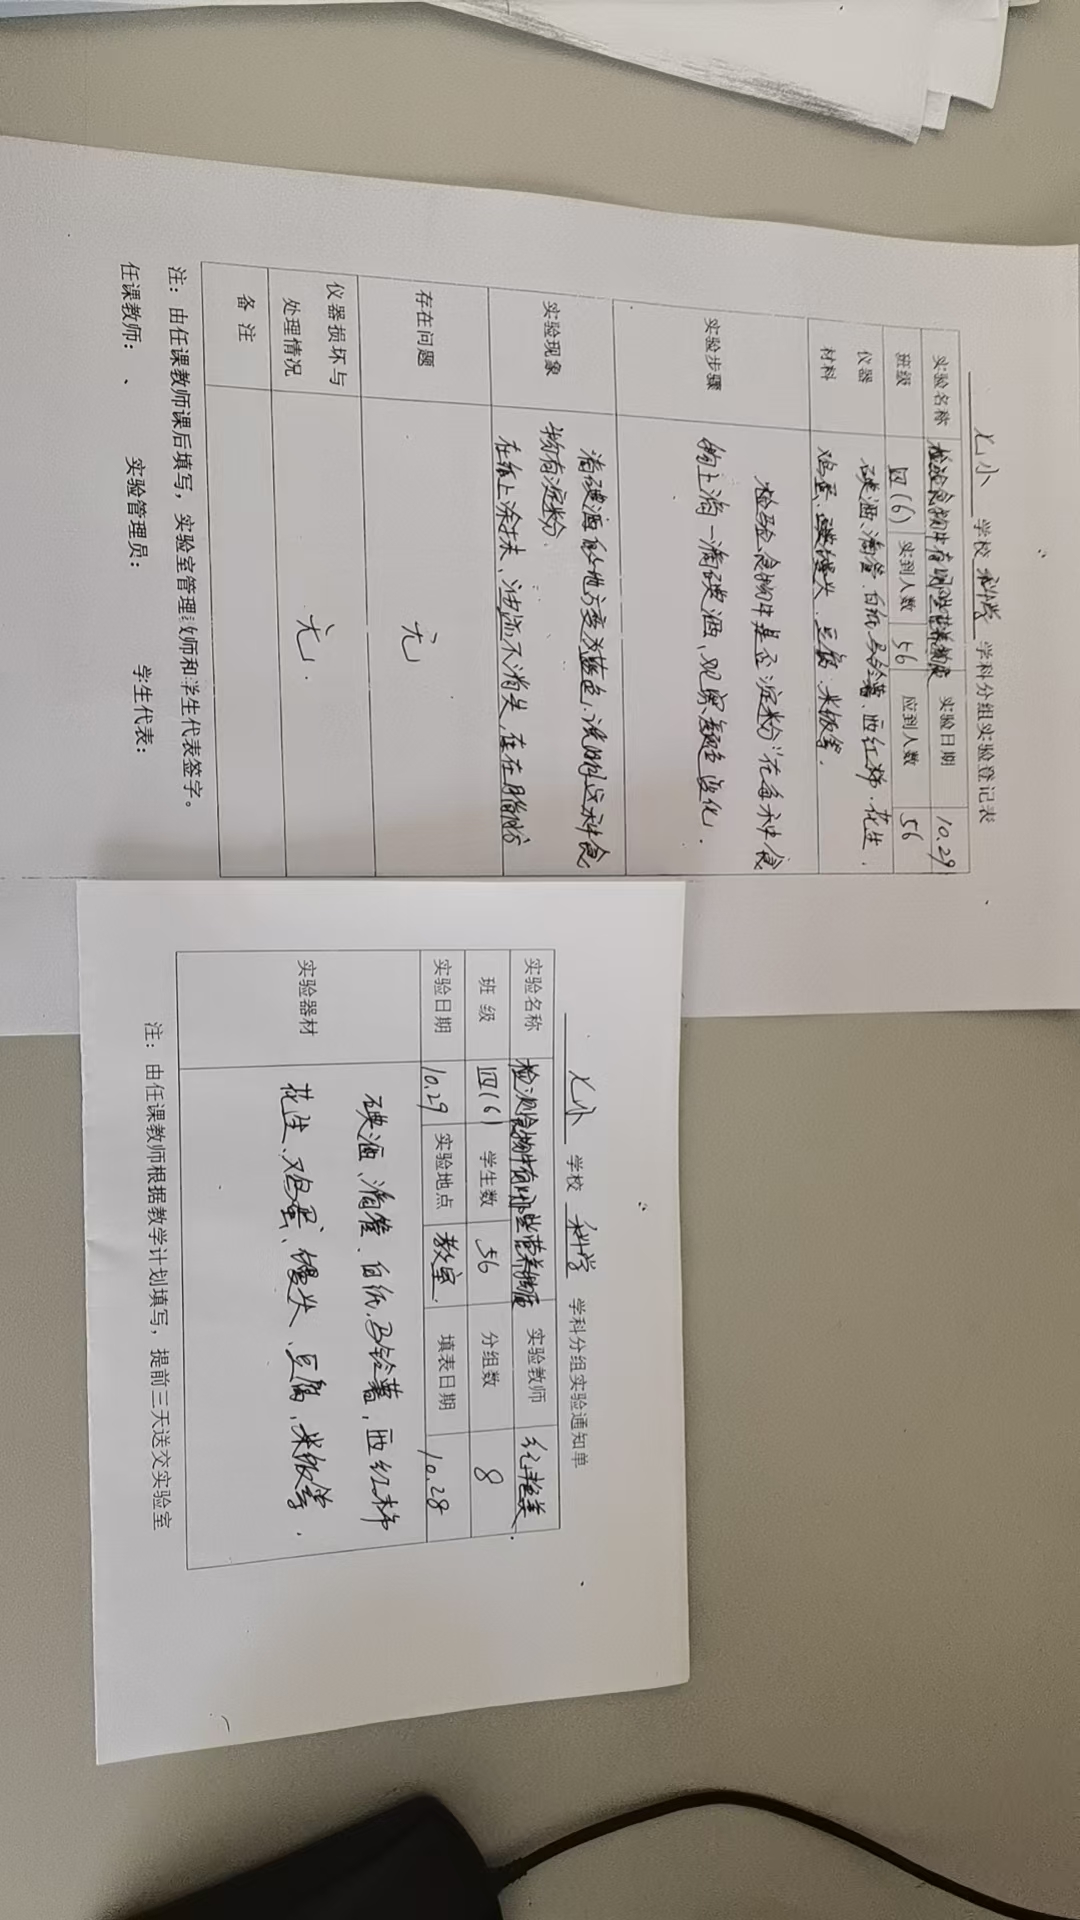 七小 学校 科学 学科分组实验登记表
实验名称 检验食物中有哪些营养物质 实验日期 10.29
班级 四(6) 实到人数 56 应到人数 56
仪器材料 碘酒、滴管、白纸、马铃薯、西红柿、花生、
鸡蛋、馒头、豆腐、米饭等.
实验步骤 检验食物中是否淀粉在每种食
物上滴一滴碘酒,观察颜色变化.
实验现象 滴碘酒的地方变为蓝色,说明这种食
物有淀粉.
在纸上涂抹、油渍不消失,存在脂肪
存在问题 无
仪器损坏与处理情况 无.
备 注
注:由任课教师课后填写,实验室管理教师和学生代表签字。
任课教师: 、 实验管理员: 学生代表:
七小 学校 科学 学科分组实验通知单
实验名称 检测食物中有哪些营养物质 实验教师
班 级 四(6) 学生数 56 分组数 8
实验日期 10.29 实验地点 教室. 填表日期 10.28
实验器材 碘酒、滴管、白纸、马铃薯,西红柿
花生、鸡蛋、馒头、豆腐、米饭等.
注:由任课教师根据教学计划填写,提前三天送交实验室